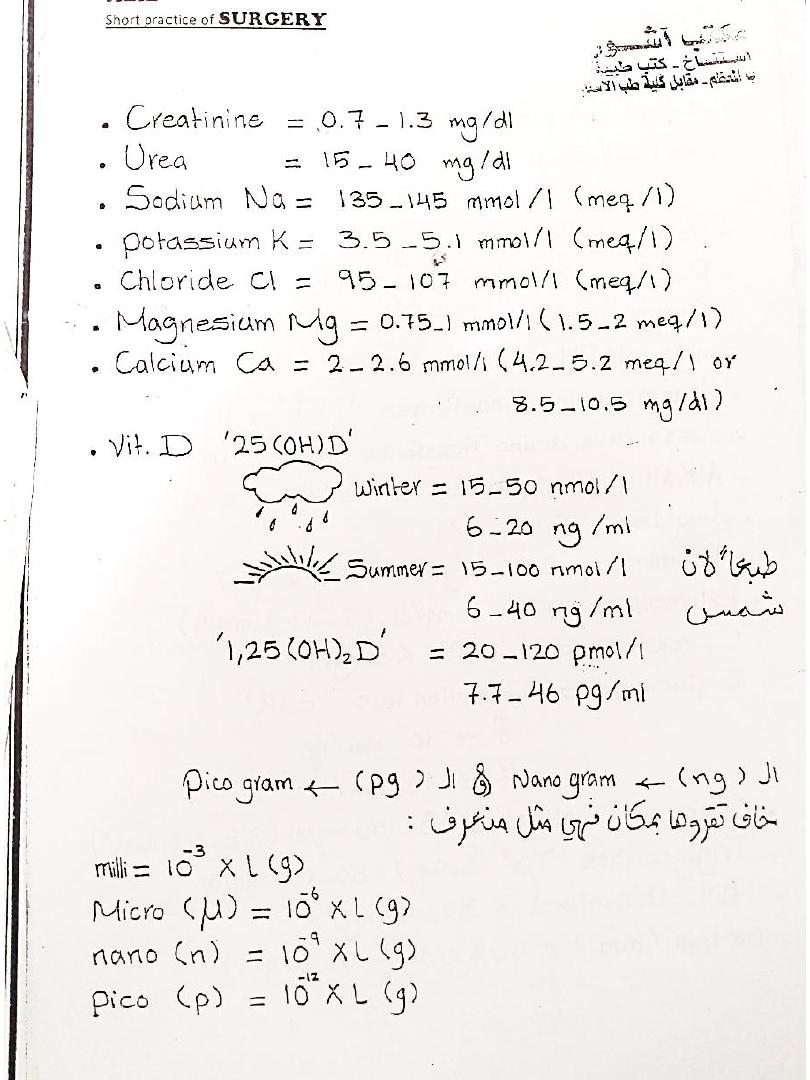 Short practice of SURGERY
مكتب آشور
استنساخ - كتب طبية
مقابل كلية طب
. Creatinine = 0.7 - 1.3 mg/dl
. Urea = 15 - 40 mg/dl
. Sodium Na = 135 - 145 mmol/l (meq/l)
. potassium K = 3.5 - 5.1 mmol/l (meq/l)
. Chloride Cl = 95 - 107 mmol/l (meq/l)
. Magnesium Mg = 0.75 - 1 mmol/l (1.5 - 2 meq/l)
. Calcium Ca = 2 - 2.6 mmol/l (4.2 - 5.2 meq/l or
8.5 - 10.5 mg/dl)
. Vit. D '25(OH)D'
Winter = 15 - 50 nmol/l
6 - 20 ng/ml
Summer = 15 - 100 nmol/l طبعاً لان
6 - 40 ng/ml شمس
'1,25(OH)₂D' = 20 - 120 pmol/l
7.7 - 46 pg/ml
ال (ng) ← Nano gram & ال (pg) ← Pico gram
خاف تقروها بمكان فهي مثل منعرف :
milli = 10⁻³ X L (g)
Micro (μ) = 10⁻⁶ X L (g)
nano (n) = 10⁻⁹ X L (g)
pico (p) = 10⁻¹² X L (g)